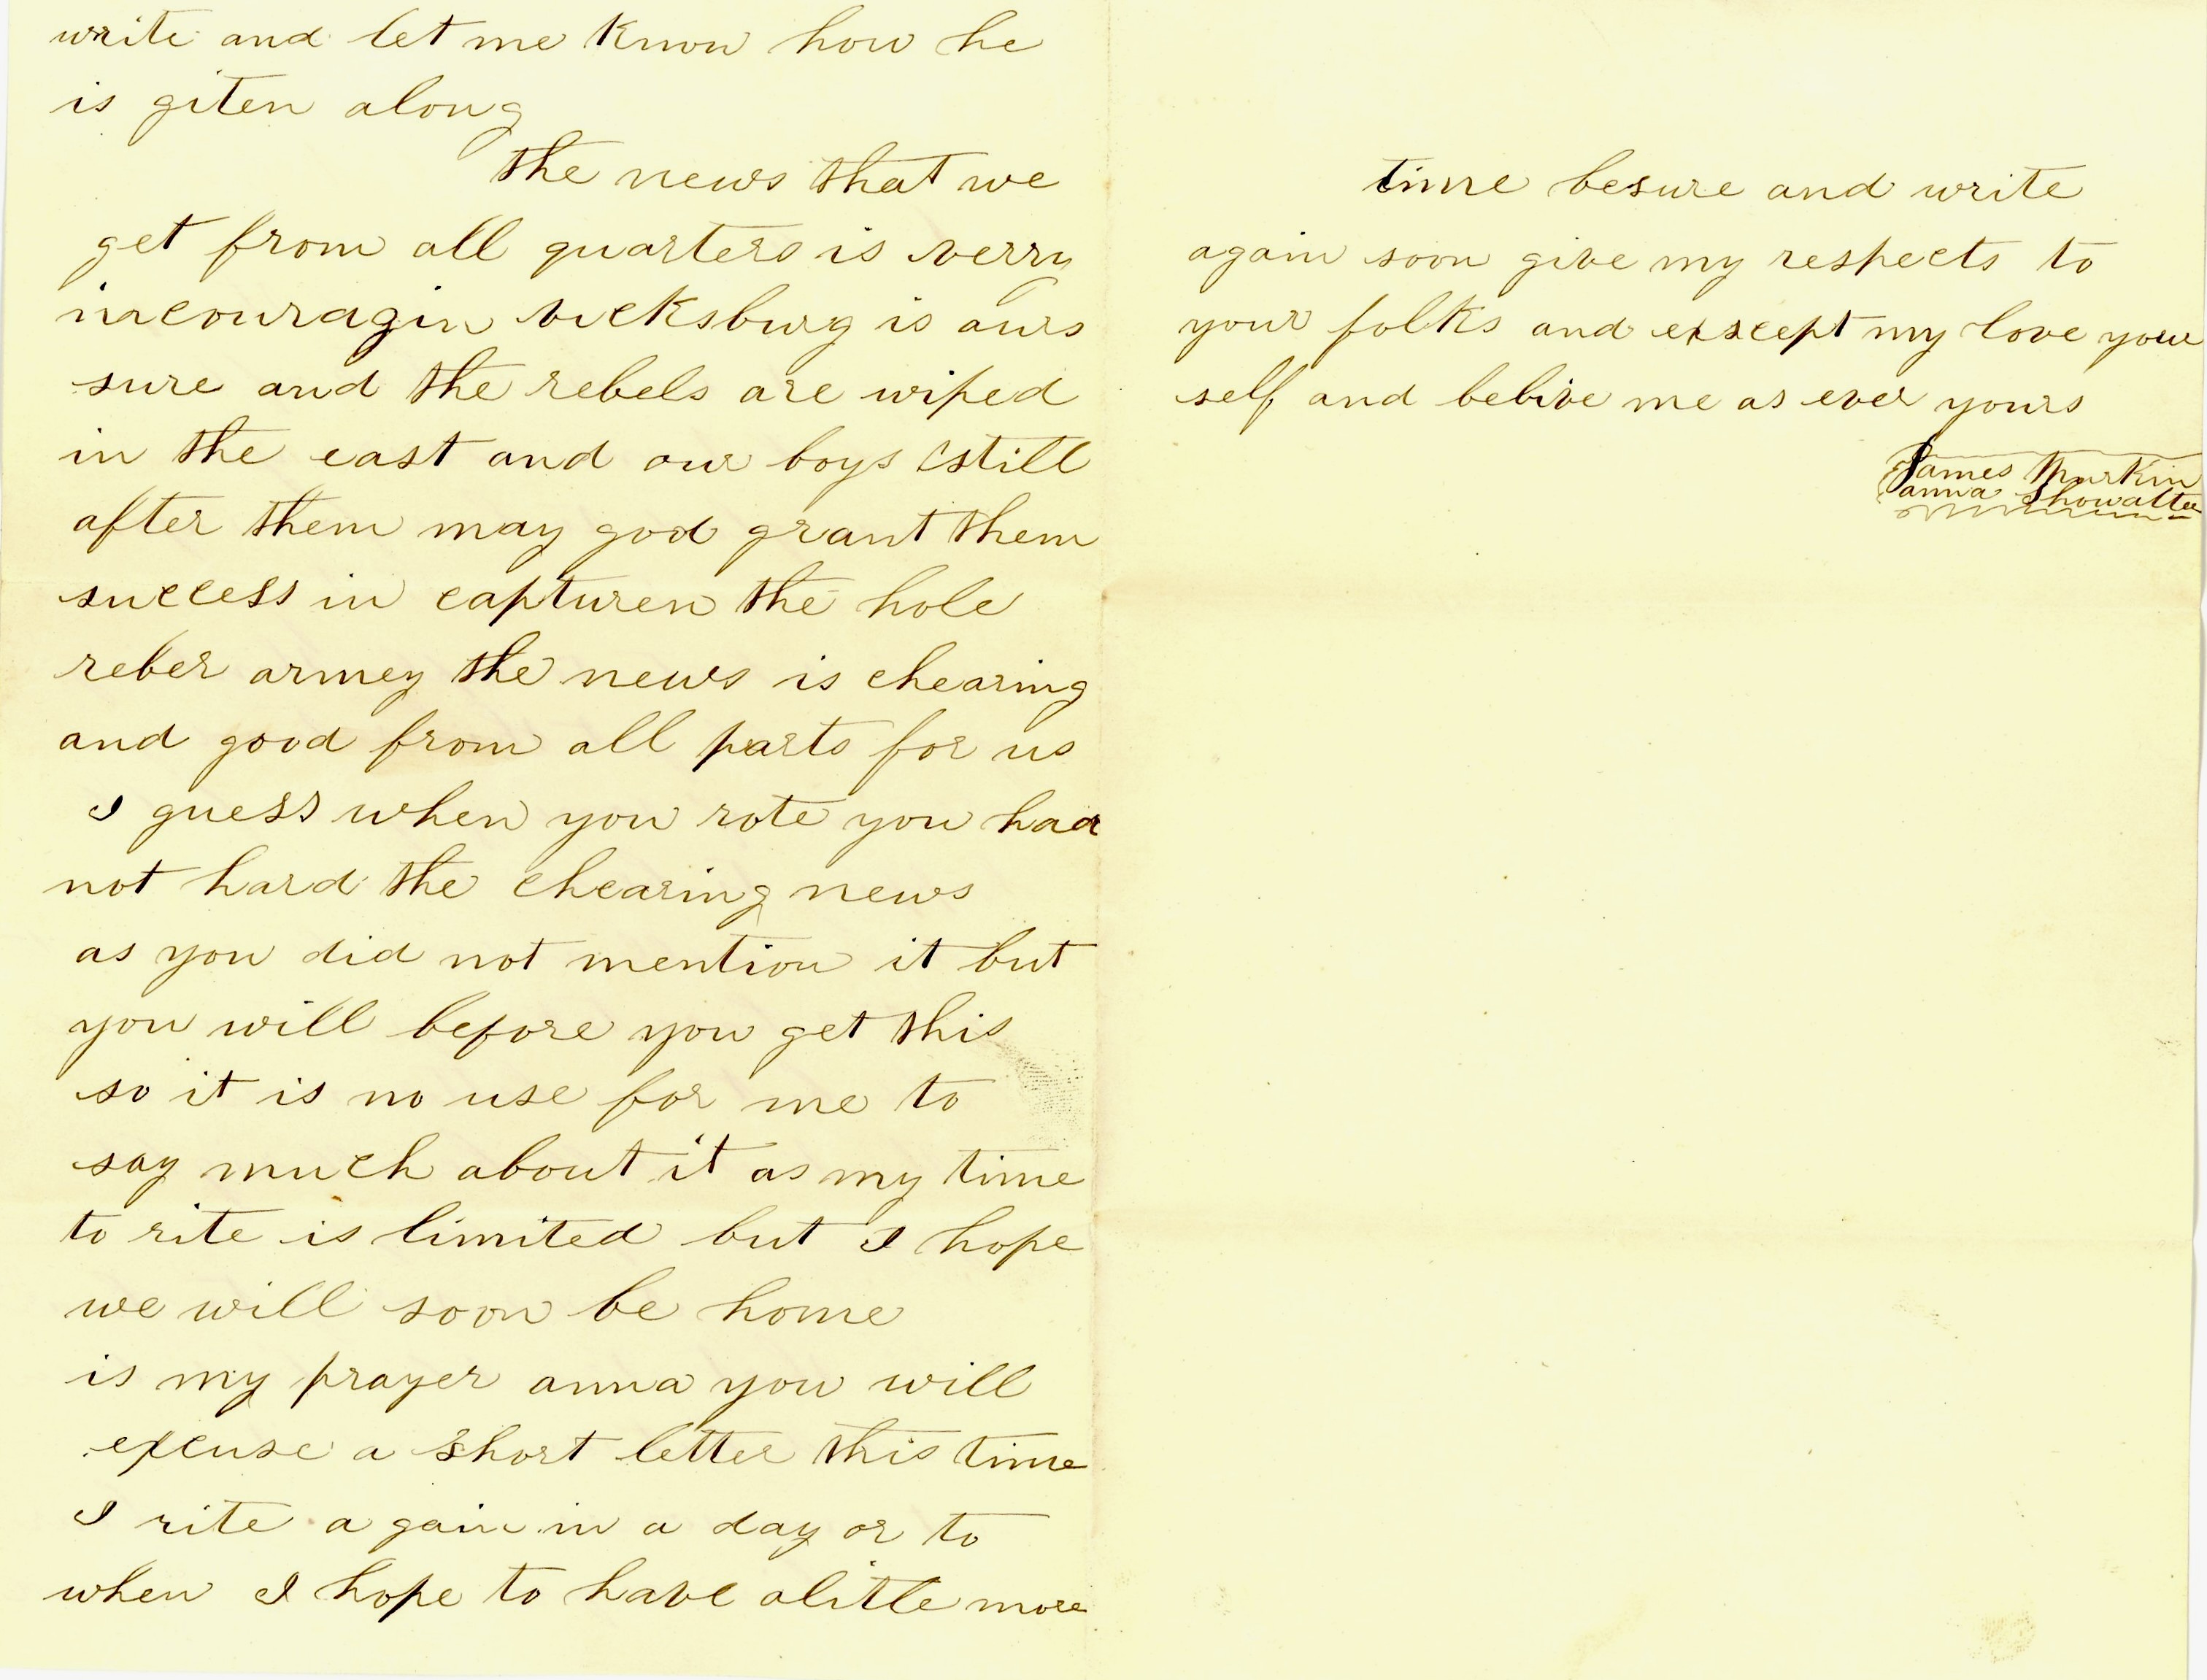 write and let me know how he
is giten along
the news that we
get from all quarters is verry
incouragin vicksburg is ours
sure and the rebels are wiped
in the east and our boys still
after them may god grant them
success in capturen the hole
reber armey the news is chearing
and good from all parts for us
I guess when you rote you had
not hard the chearing news
as you did not mention it but
you will before you get this
so it is no use for me to
say much about it as my time
to rite is limited but I hope
we will soon be home
is my prayer anna you will
excuse a short letter this time
I rite a gain in a day or to
when I hope to have alittle more
time besure and write
again soon give my respects to
your folks and except my love your
self and belive me as ever yours
James Murkin
anna Showalter